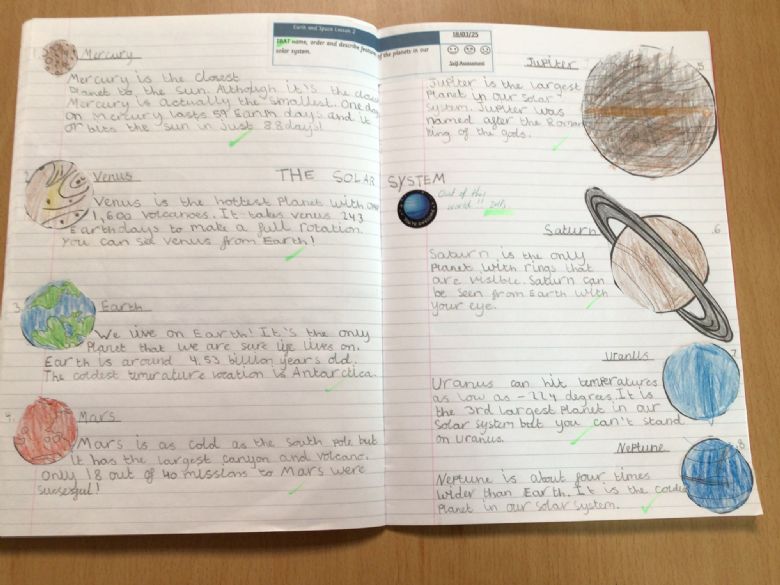 Earth and Space Lesson 2
LBAT name, order and describe features of the planets in our
solar system.
18/03/25
Self-Assessment
1.
Mercury
Mercury is the closest
Planet to the sun. Although it's the
Mercury is actually the smallest. One day
on Mercury lasts 59 Earth days and it
orbits the sun in just 88 days!
2.
Venus
Venus is the hottest Planet with
1,600 volcanoes. It takes venus 243
Earthdays to make a full rotation.
You can see Venus from Earth!
THE SOLAR SYSTEM
3.
Earth
We live on Earth! It's the only
Planet that we are sure life lives on.
Earth is around 4.53 billion years old.
The coldest location is Antarctica.
4.
Mars
Mars is as cold as the South Pole but
it has the largest canyon and volcano.
Only 18 out of 40 missions to Mars were
5
Jupiter
Jupiter is the largest
Planet in our solar
system. Jupiter was
named after the Roman
king of the gods.
Out of this
world!!
6
Saturn
Saturn is the only
Planet with rings that
are visible. Saturn can
be seen from Earth with
your eye.
7
Uranus
Uranus can hit temperatures
as low as -224 degrees. It is
the 3rd largest Planet in our
Solar system but you can't stand
on Uranus.
8
Neptune
Neptune is about four times
wider than Earth. It is the
Planet in our solar system.